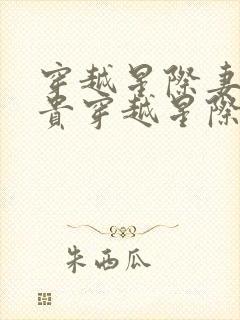 穿越星際妻
貴穿越星際
朱西瓜